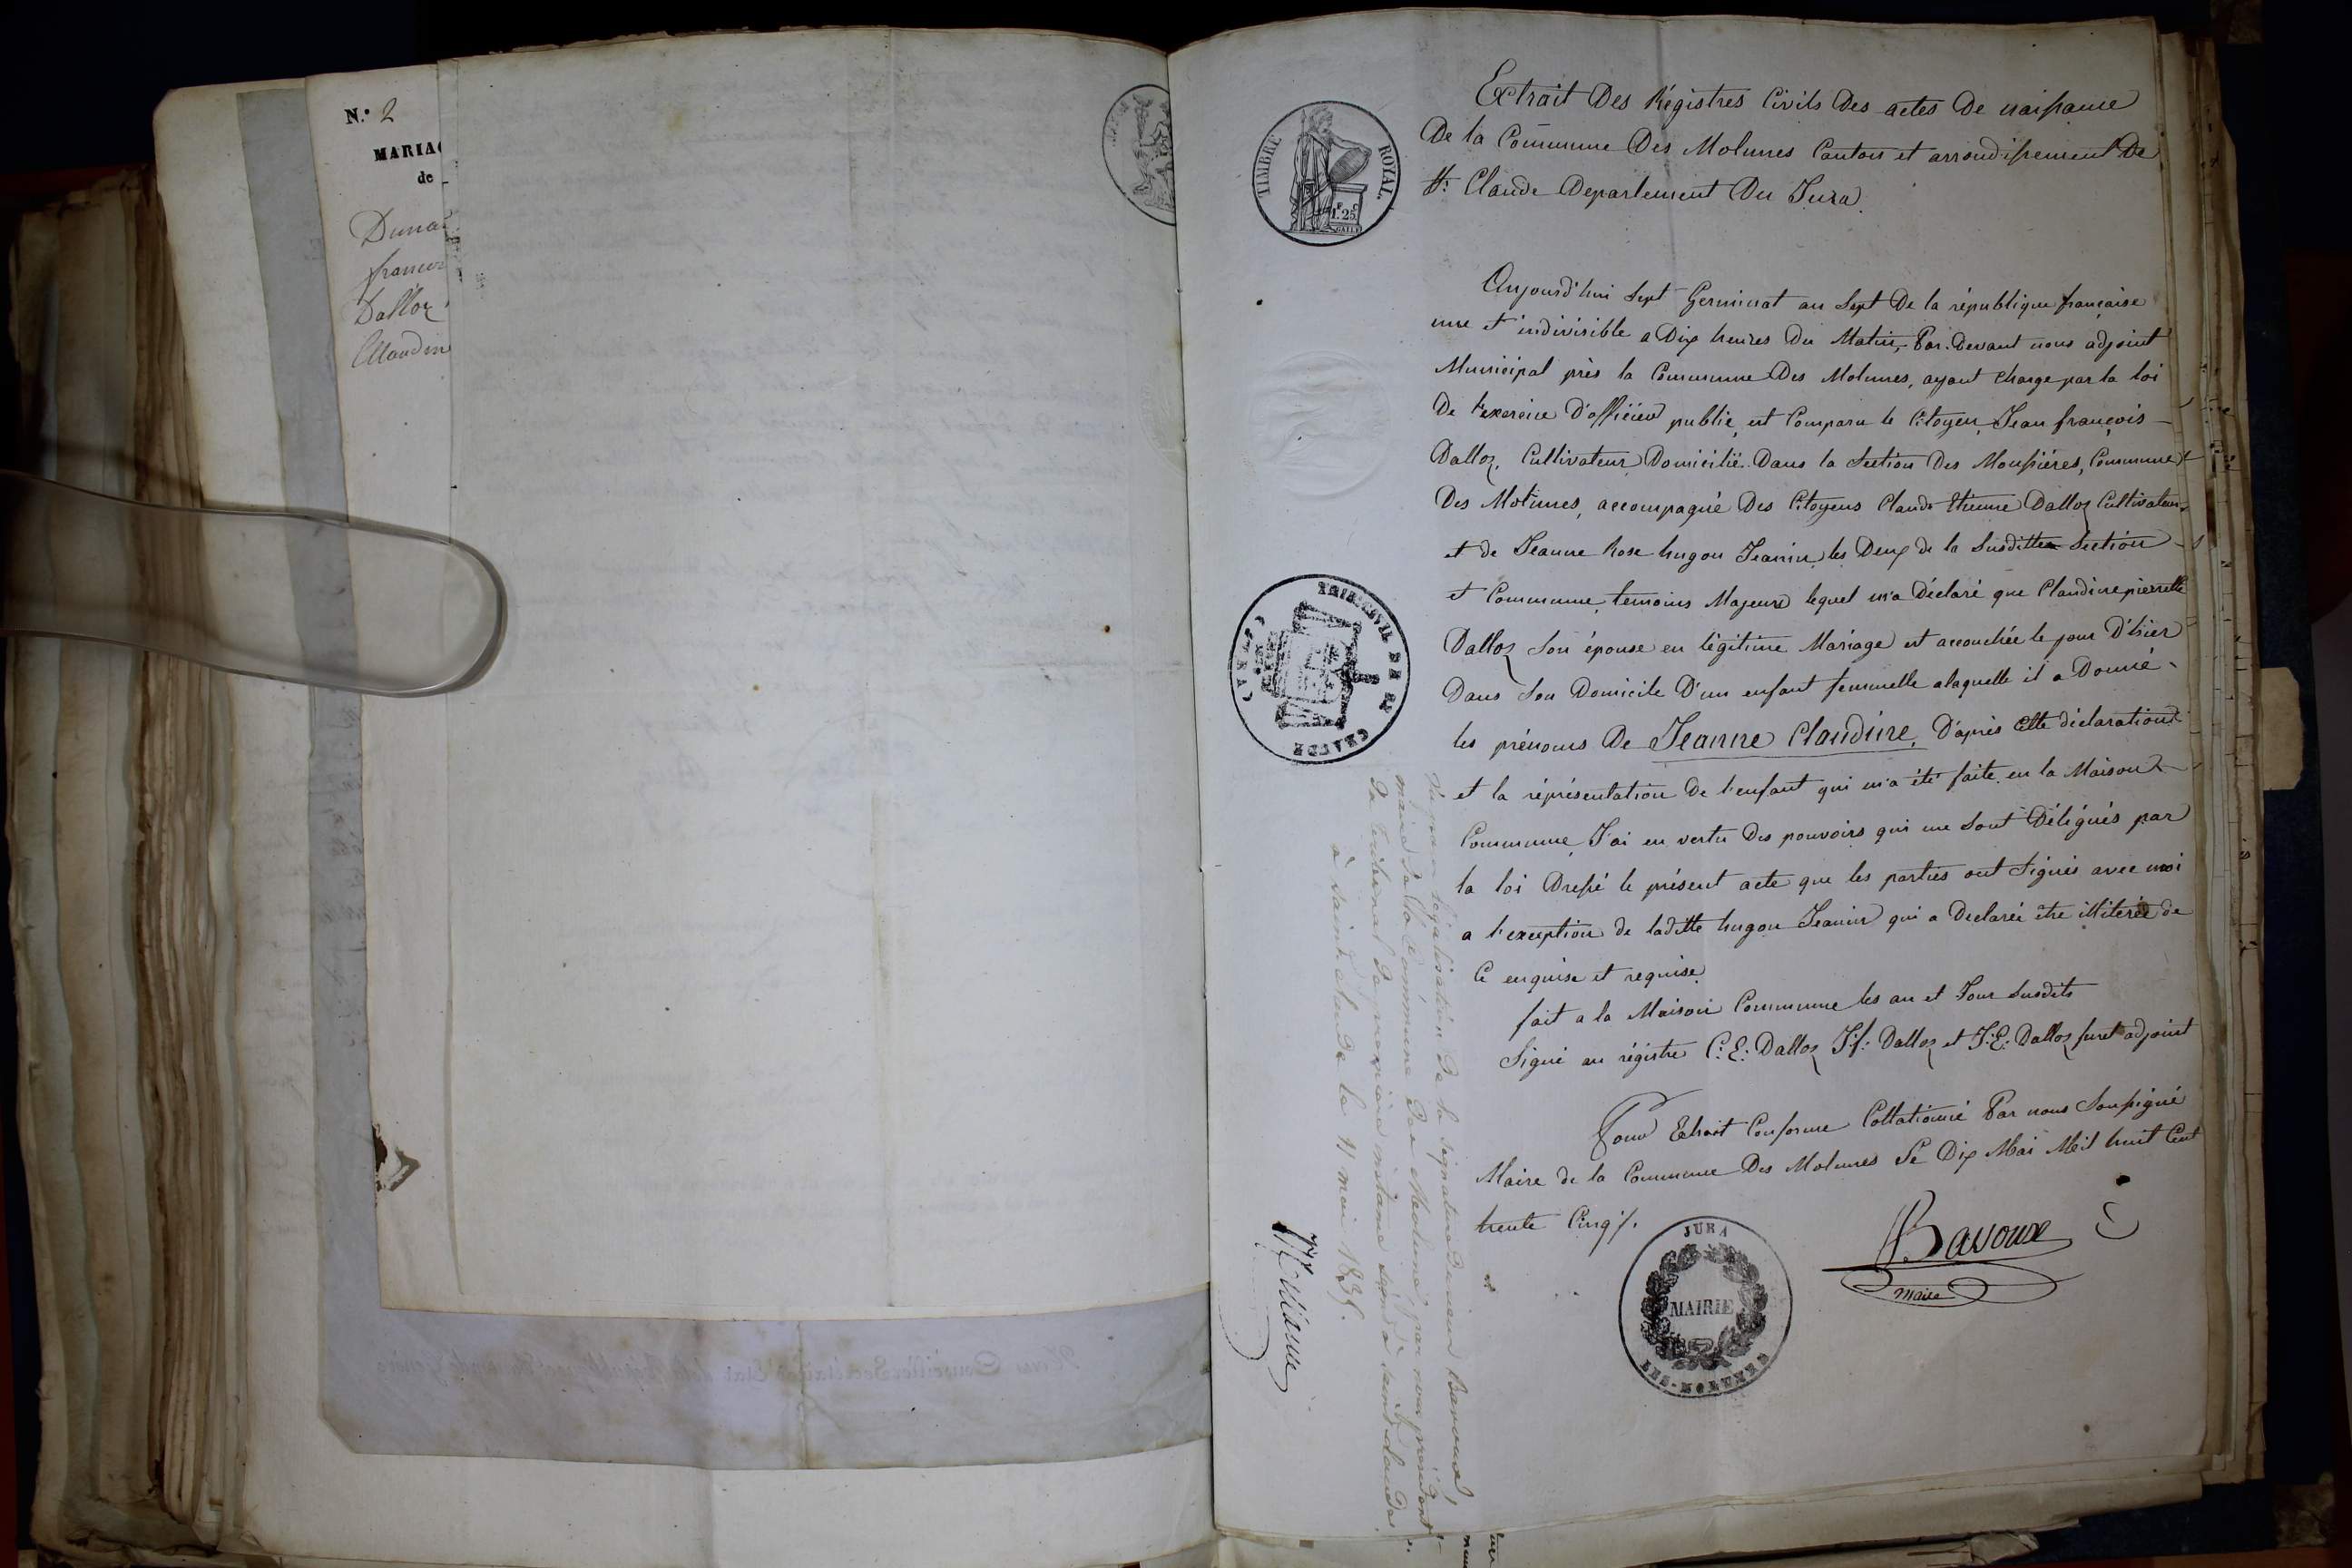 N.o 2
MARIA
de
Duna
francoi
Dalloz
Claudin
TIMBRE ROYAL.
1.25
Extrait Des Régistres Civils Des actes De naissance
De la Commune Des Molunes Canton et arrondissement De
St. Claude Departement Du Jura.
Aujourd'hui Sept Germinat an Sept De la république française
une et indivisible a Dix heures Du Matin, Par-Devant nous adjoint
Municipal près la Commune Des Molunes, ayant Charge par la loi
De l'exercice D'officier public, est Comparu le Citoyen, Jean françois
Dalloz, Cultivateur Domicilié Dans la Section Des Moussières, Commune
Des Molunes, accompagné Des Citoyens Claude Etienne Dalloz Cultivateur
et de Jeanne Rose hugon Jeannin, les Deux de la Susditte Section
et Commune, temoins Majeurs lequel m'a Déclaré que Claudine pierrette
Dalloz Son épouse en légitime Mariage est accouchée le jour D'hier
Dans Son Domicile D'un enfant femmelle alaquelle il a Donné
les prénoms De Jeanne Claudine, D'après Cette déclaration
et la réprésentation De l'enfant qui m'a été faite en la Maison
Commune, J'ai en vertu Des pouvoirs qui me Sont Délégués par
la loi Dressé le présent acte que les parties ont Signés avec moi
a l'exception de laditte hugon Jeannin qui a Declarée être illiterée de
Ce enquise et requise.
fait a la Maison Commune les an et Jour Susdits
Signé au régistre C: E: Dalloz J: f: Dalloz et J: E: Dalloz furet adjoint
Pour Extrait Conforme Collationné Par nous Soussigné
Maire de la Commune Des Molunes Le Dix Mai Mil huit Cent
trente Cinq ./.
Bavoux
maire
JURA
MAIRIE
LES-MOLUNES
TRIB. CIVIL DE ST CLAUDE
Vu pour légalisation De la Signature Du sieur Bavoux,
maire De la Commune Des Molunes, par nous président
Du tribunal De première instance séant à Saint Claude.
à Saint Claude le 11 mai 1835.